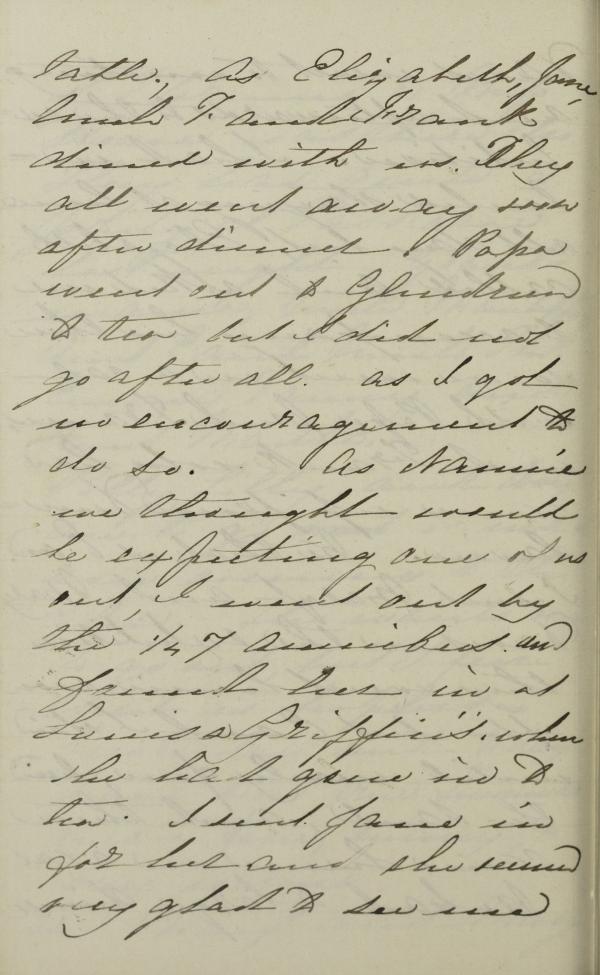 table, as Elizabeth, Jane,
T. and Frank
dined with us. They
all went away soon
after dinner. Papa
went out to
to tea but I did not
go after all. as I got
no encouragement to
do so. As Nannie
we thought would
be expecting one of us
out, I went out by
the 1/4 7 omnibus. and
found her in at
Louisa Griffin's. when
she had gone in to
tea. I sent Jane in
for her and she seemed
very glad to see me